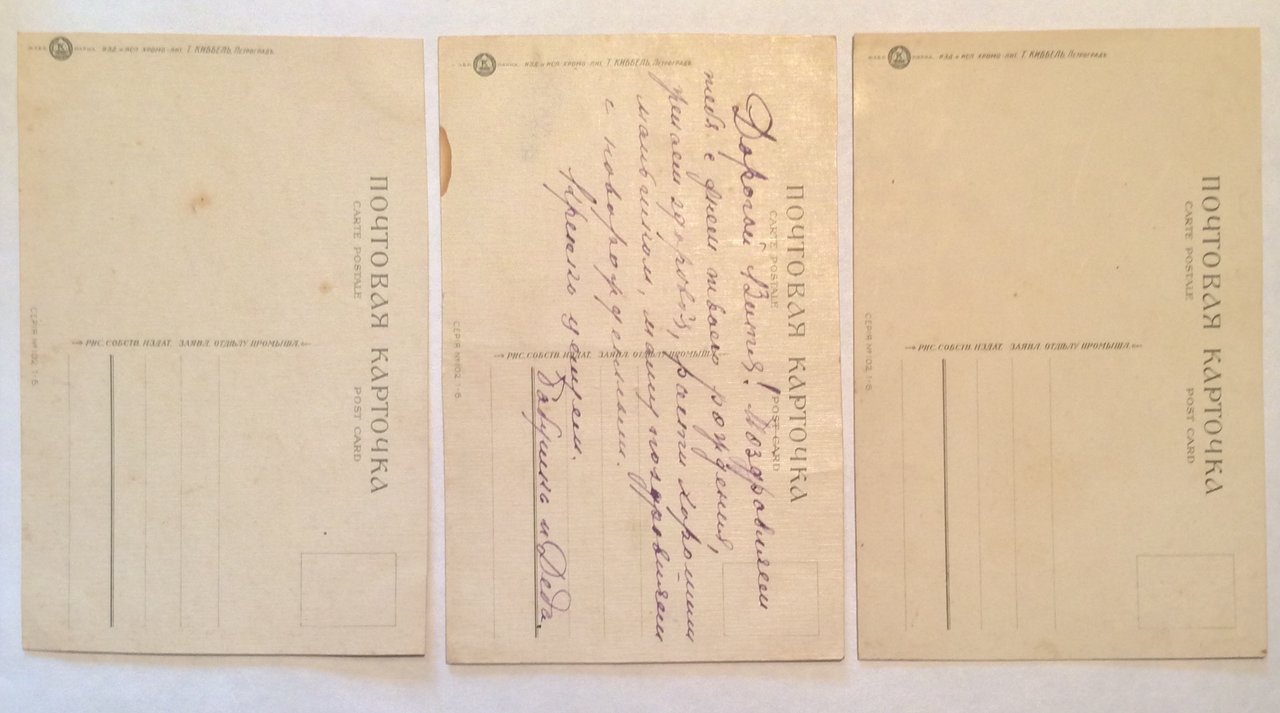 ИЗД. и ИСП. ХРОМО-ЛИТ. Т. КИББЕЛЬ, Петроградъ.
ПОЧТОВАЯ КАРТОЧКА
CARTE POSTALE POST CARD
РИС. СОБСТВ. ИЗДАТ. ЗАЯВЛ. ОТДѢЛУ ПРОМЫШЛ.
СЕРІЯ № 102. 1-6
ИЗД. и ИСП. ХРОМО-ЛИТ. Т. КИББЕЛЬ, Петроградъ.
ПОЧТОВАЯ КАРТОЧКА
CARTE POSTALE POST CARD
РИС. СОБСТВ. ИЗДАТ. ЗАЯВЛ. ОТДѢЛУ ПРОМЫШЛ.
СЕРІЯ № 102. 1-6
Дорогой Витя! Поздравляем
тебя с днем твоего рождения,
желаем здоровья, расти хорошим
мальчиком, маму поздравляем
с новорожденным.
Крепко целуем.
Бабушка и Деда.
ИЗД. и ИСП. ХРОМО-ЛИТ. Т. КИББЕЛЬ, Петроградъ.
ПОЧТОВАЯ КАРТОЧКА
CARTE POSTALE POST CARD
РИС. СОБСТВ. ИЗДАТ. ЗАЯВЛ. ОТДѢЛУ ПРОМЫШЛ.
СЕРІЯ № 102. 1-6